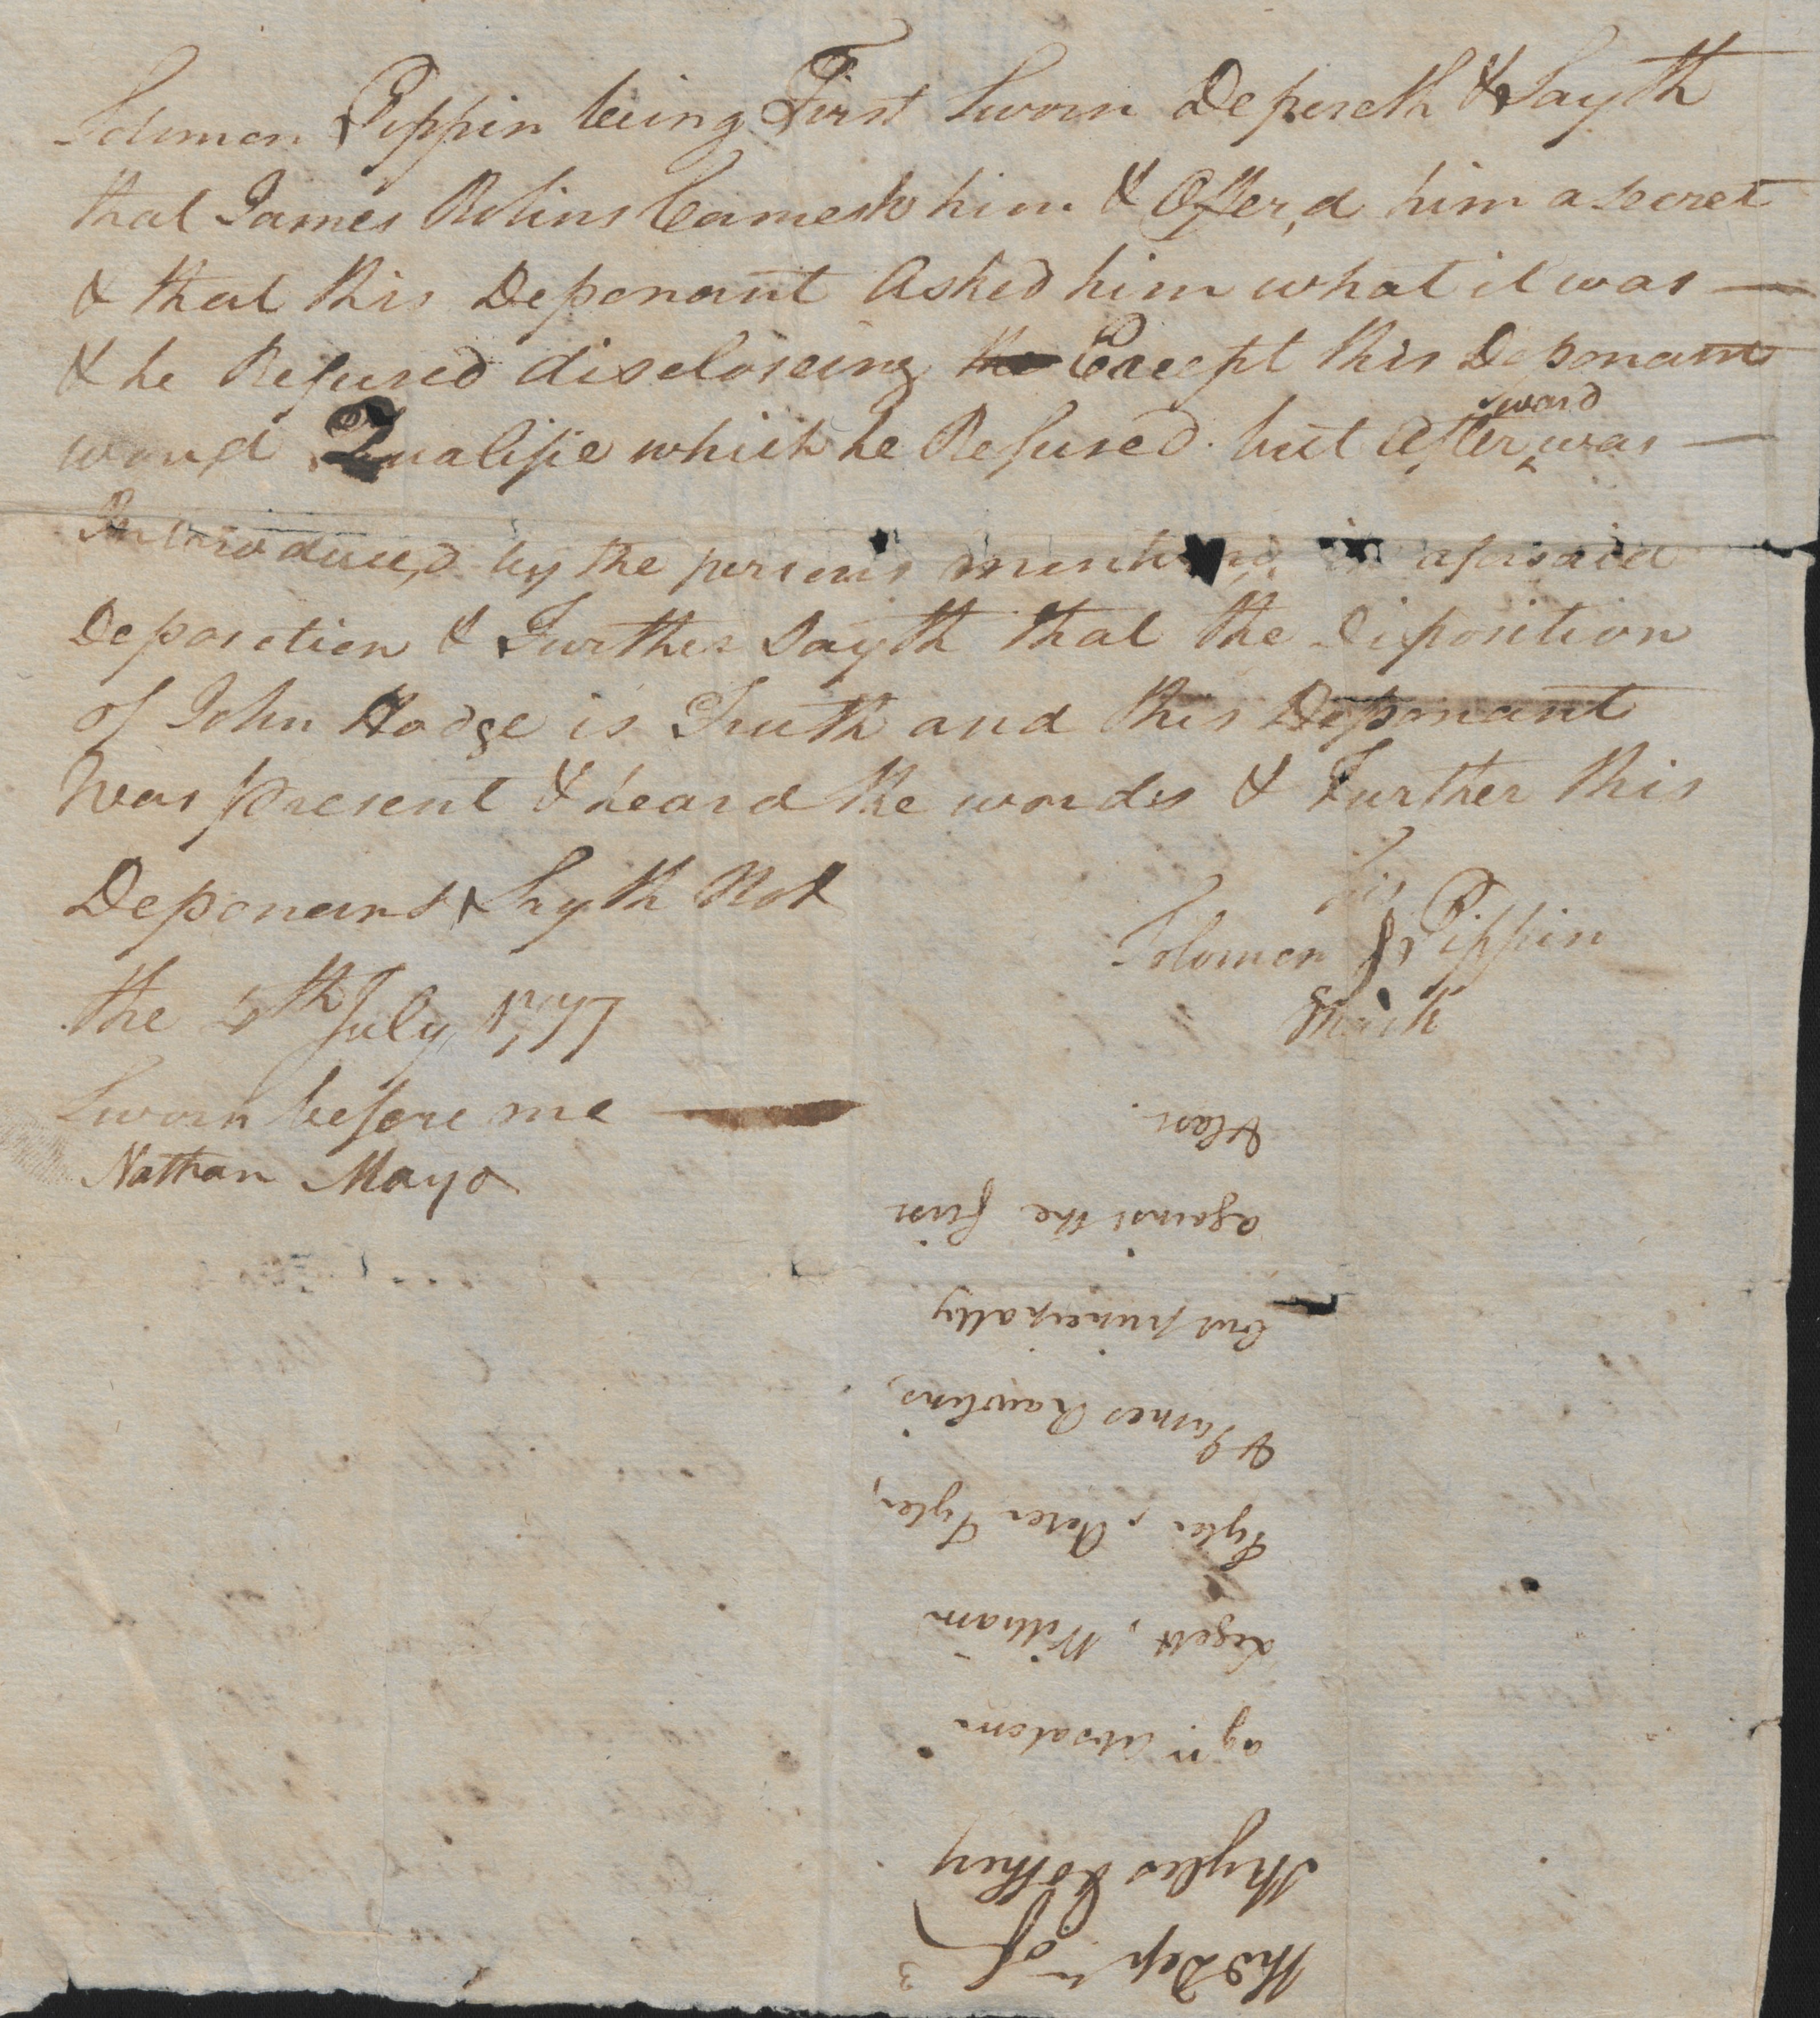 Solomon Pippin being First Sworn Deposeth & Sayth
that James Rolins Came to him & Offer,d him a secret
& that this Deponant Asked him what it was —
& he Refused discloseing the Except this Deponant
woud Qualifie which he Refused but After ward was —
Introduced by the persons mentiond in afisaid
Deposetion & Further Sayth that the Diposition
of John Hodge is Truth and this Deponant
Was present & heard the words & Further this
Deponant Sayth Not
his
Solomon Pippin
Mark
the 4th July 1777
Sworn before me —
Nathan Mayo
The Depn of
Myles Cothey
agst Absalom
Legett, William
Tyler, Peter Tyler,
& James Rawlins,
but principally
against the first
& last.